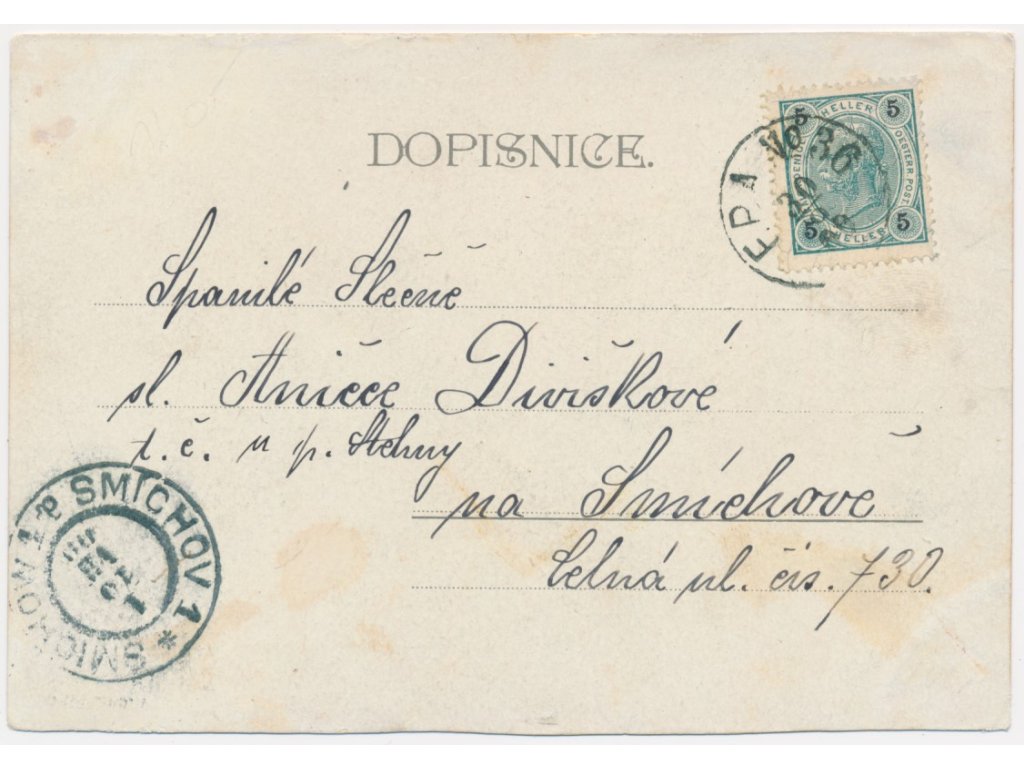 DOPISNICE.
5 HELLER 5
OESTERR. POST
5 HELLER 5
36
Spanilé Slečně
sl. Aničce Diviškové
t. č. u p. Stehny
na Smíchově
Celná ul. čís. 730.
SMÍCHOV 1
SMICHOW 1